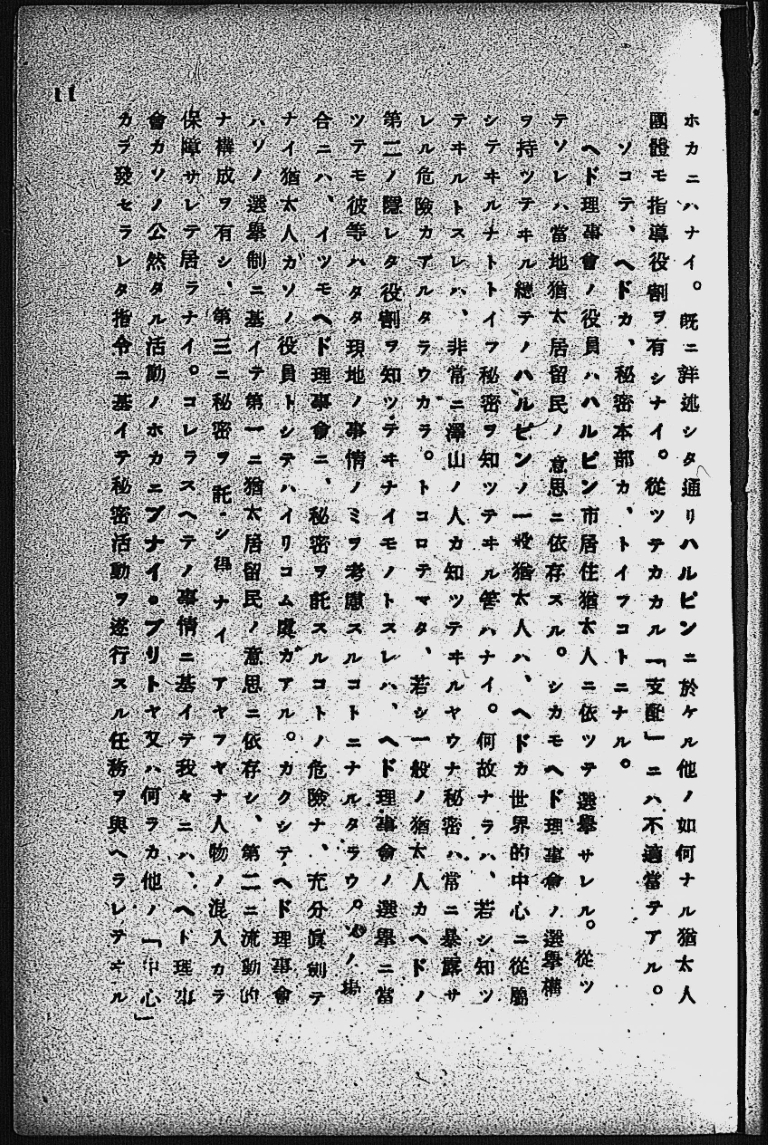 ホカニハナイ。既ニ詳述シタ通リハルビンニ於ケル他ノ如何ナル猶太人
團體モ指導役割ヲ有シナイ。從ツテカカル「支配」ニハ不適當テアル。
ソコテ、ヘドカ、秘密本部カ、トイフコトニナル。
ヘド理事會ノ役員ハハルビン市居住猶太人ニ依ツテ選擧サレル。從ツ
テソレハ當地猶太居留民ノ意思ニ依存スル。シカモヘド理事會ノ選擧構
ヲ持ツテヰル總テノハルビンノ一般猶太人ハ、ヘドカ世界的中心ニ從屬
シテヰルナトトイフ秘密ヲ知ツテヰル筈ハナイ。何故ナラハ、若シ知ツ
テヰルトスレハ、非常ニ澤山ノ人カ知ツテヰルヤウナ秘密ハ常ニ暴露サ
レル危險カアルタラウカラ。トコロテマタ、若シ一般ノ猶太人カヘドノ
第二ノ隱レタ役割ヲ知ツテヰナイモノトスレハ、ヘド理事會ノ選擧ニ當
ツテモ彼等ハタタ現地ノ事情ノミヲ考慮スルコトニナルタラウ。ソノ場
合ニハ、イツモヘド理事會ニ、秘密ヲ託スルコトノ危險ナ、充分眞劍テ
ナイ猶太人ガソノ役員トシテハイリコム虞ガアル。カクシテヘド理事會
ハソノ選擧制ニ基イテ第一ニ猶太居留民ノ意思ニ依存シ、第二ニ流動的
ナ構成ヲ有シ、第三ニ秘密ヲ託シ得ナイアヤフヤナ人物ノ混入カラ
保障サレテ居ラナイ。コレラスヘテノ事情ニ基イテ我々ニハ、ヘト理事
會カソノ公然タル活動ノホカニブナイ・ブリトヤ又ハ何ラカ他ノ「中心」
カラ發セラレタ指令ニ基イテ秘密活動ヲ遂行スル任務ヲ與ヘラレテヰル
11